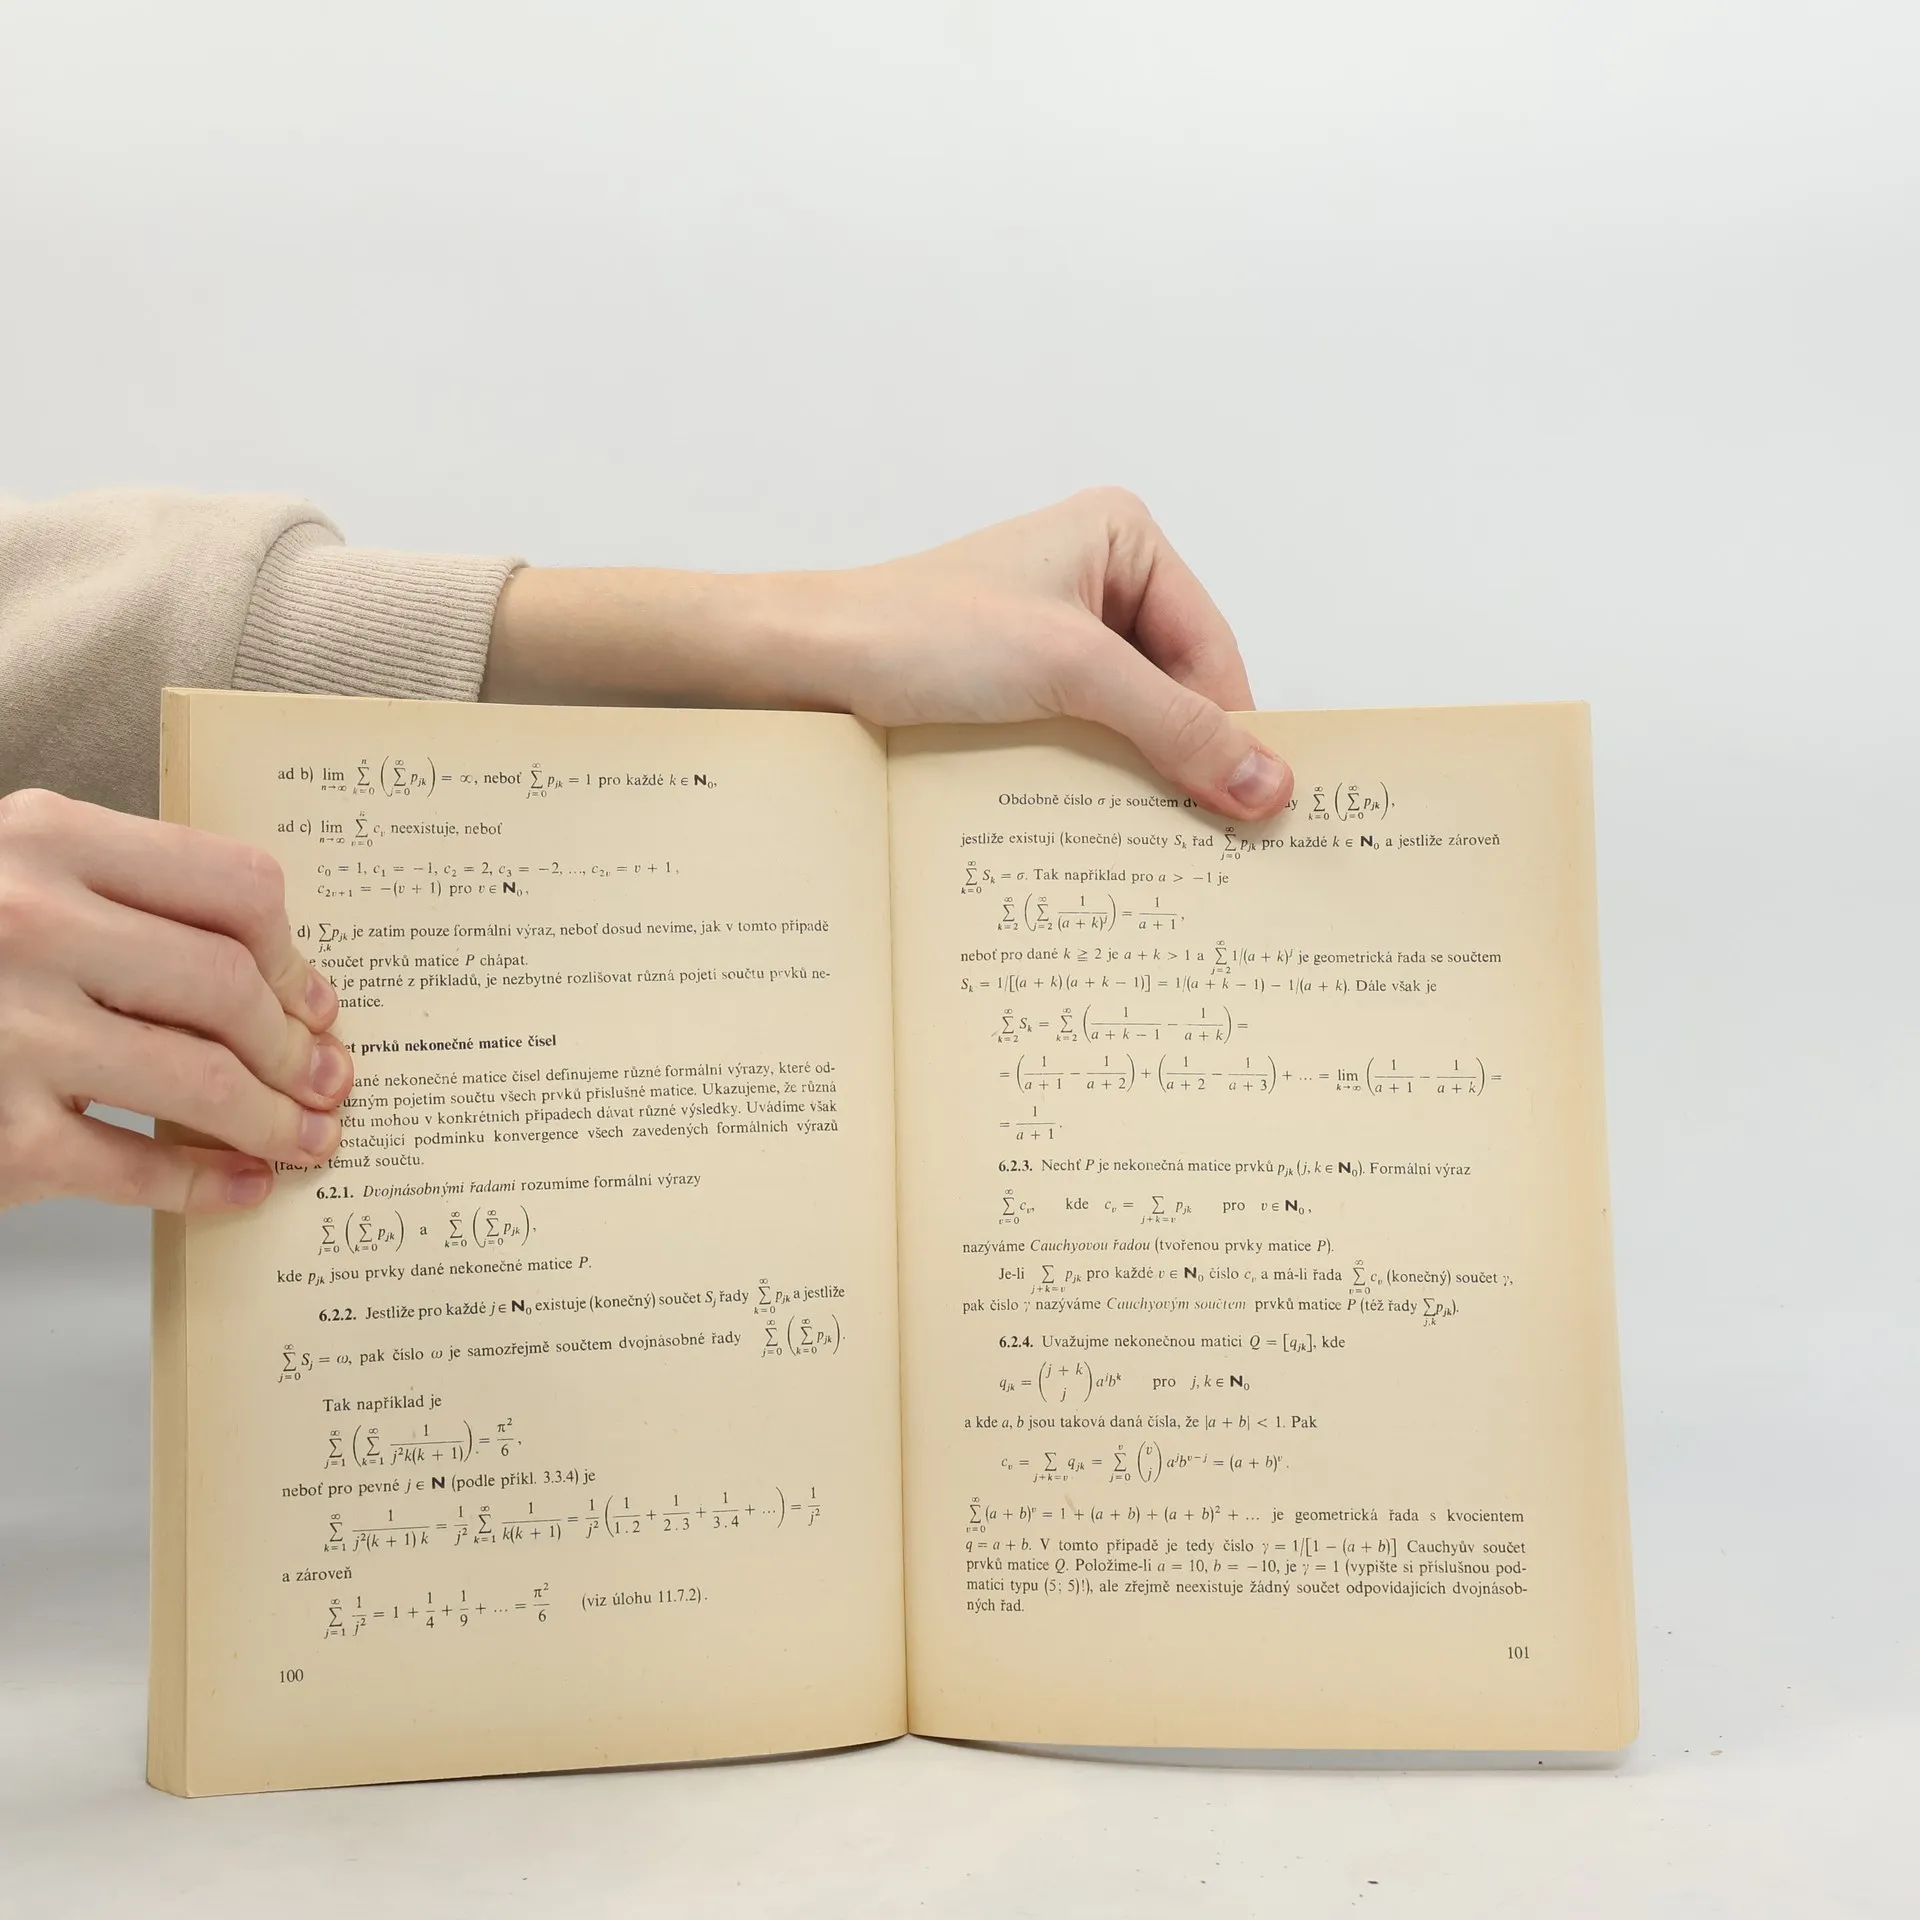 ad b) lim_{n→∞} ∑_{k=0}^{n} (∑_{j=0}^{∞} p_{jk}) = ∞, neboť ∑_{j=0}^{∞} p_{jk} = 1 pro každé k ∈ N₀,
ad c) lim_{n→∞} ∑_{v=0}^{n} c_v neexistuje, neboť
c₀ = 1, c₁ = −1, c₂ = 2, c₃ = −2, ..., c_{2v} = v + 1,
c_{2v+1} = −(v + 1) pro v ∈ N₀,
d) ∑_{j,k} p_{jk} je zatím pouze formální výraz, neboť dosud nevíme, jak v tomto případě
součet prvků matice P chápat.
je patrné z příkladů, je nezbytné rozlišovat různá pojetí součtu prvků ne-
matice.
prvků nekonečné matice čísel
nekonečné matice čísel definujeme různé formální výrazy, které od-
pojetím součtu všech prvků příslušné matice. Ukazujeme, že různá
mohou v konkrétních případech dávat různé výsledky. Uvádíme však
podmínku konvergence všech zavedených formálních výrazů
témuž součtu.
6.2.1. Dvojnásobnými řadami rozumíme formální výrazy
∑_{j=0}^{∞} (∑_{k=0}^{∞} p_{jk}) a ∑_{k=0}^{∞} (∑_{j=0}^{∞} p_{jk}),
kde p_{jk} jsou prvky dané nekonečné matice P.
6.2.2. Jestliže pro každé j ∈ N₀ existuje (konečný) součet S_j řady ∑_{k=0}^{∞} p_{jk} a jestliže
∑_{j=0}^{∞} S_j = ω, pak číslo ω je samozřejmě součtem dvojnásobné řady ∑_{j=0}^{∞} (∑_{k=0}^{∞} p_{jk}).
Tak například je
∑_{j=1}^{∞} (∑_{k=1}^{∞} 1/(j²k(k + 1))) = π²/6,
neboť pro pevné j ∈ N (podle příkl. 3.3.4) je
∑_{k=1}^{∞} 1/(j²(k + 1) k) = 1/j² ∑_{k=1}^{∞} 1/(k(k + 1)) = 1/j² (1/(1.2) + 1/(2.3) + 1/(3.4) + ...) = 1/j²
a zároveň
∑_{j=1}^{∞} 1/j² = 1 + 1/4 + 1/9 + ... = π²/6 (viz úlohu 11.7.2).
100
Obdobně číslo σ je součtem ∑_{k=0}^{∞} (∑_{j=0}^{∞} p_{jk}),
jestliže existují (konečné) součty S_k řad ∑_{j=0}^{∞} p_{jk} pro každé k ∈ N₀ a jestliže zároveň
∑_{k=0}^{∞} S_k = σ. Tak například pro a > −1 je
∑_{k=2}^{∞} (∑_{j=2}^{∞} 1/(a + k)^j) = 1/(a + 1),
neboť pro dané k ≧ 2 je a + k > 1 a ∑_{j=2}^{∞} 1/(a + k)^j je geometrická řada se součtem
S_k = 1/[(a + k)(a + k − 1)] = 1/(a + k − 1) − 1/(a + k). Dále však je
∑_{k=2}^{∞} S_k = ∑_{k=2}^{∞} (1/(a + k − 1) − 1/(a + k)) =
= (1/(a + 1) − 1/(a + 2)) + (1/(a + 2) − 1/(a + 3)) + ... = lim_{k→∞} (1/(a + 1) − 1/(a + k)) =
= 1/(a + 1).
6.2.3. Nechť P je nekonečná matice prvků p_{jk} (j, k ∈ N₀). Formální výraz
∑_{v=0}^{∞} c_v, kde c_v = ∑_{j+k=v} p_{jk} pro v ∈ N₀,
nazýváme Cauchyovou řadou (tvořenou prvky matice P).
Je-li ∑_{j+k=v} p_{jk} pro každé v ∈ N₀ číslo c_v a má-li řada ∑_{v=0}^{∞} c_v (konečný) součet γ,
pak číslo γ nazýváme Cauchyovým součtem prvků matice P (též řady ∑_{j,k} p_{jk}).
6.2.4. Uvažujme nekonečnou matici Q = [q_{jk}], kde
q_{jk} = (j + k nad j) a^j b^k pro j, k ∈ N₀
a kde a, b jsou taková daná čísla, že |a + b| < 1. Pak
c_v = ∑_{j+k=v} q_{jk} = ∑_{j=0}^{v} (v nad j) a^j b^{v−j} = (a + b)^v.
∑_{v=0}^{∞} (a + b)^v = 1 + (a + b) + (a + b)² + ... je geometrická řada s kvocientem
q = a + b. V tomto případě je tedy číslo γ = 1/[1 − (a + b)] Cauchyův součet
prvků matice Q. Položíme-li a = 10, b = −10, je γ = 1 (vypište si příslušnou pod-
matici typu (5; 5)!), ale zřejmě neexistuje žádný součet odpovídajících dvojnásob-
ných řad.
101